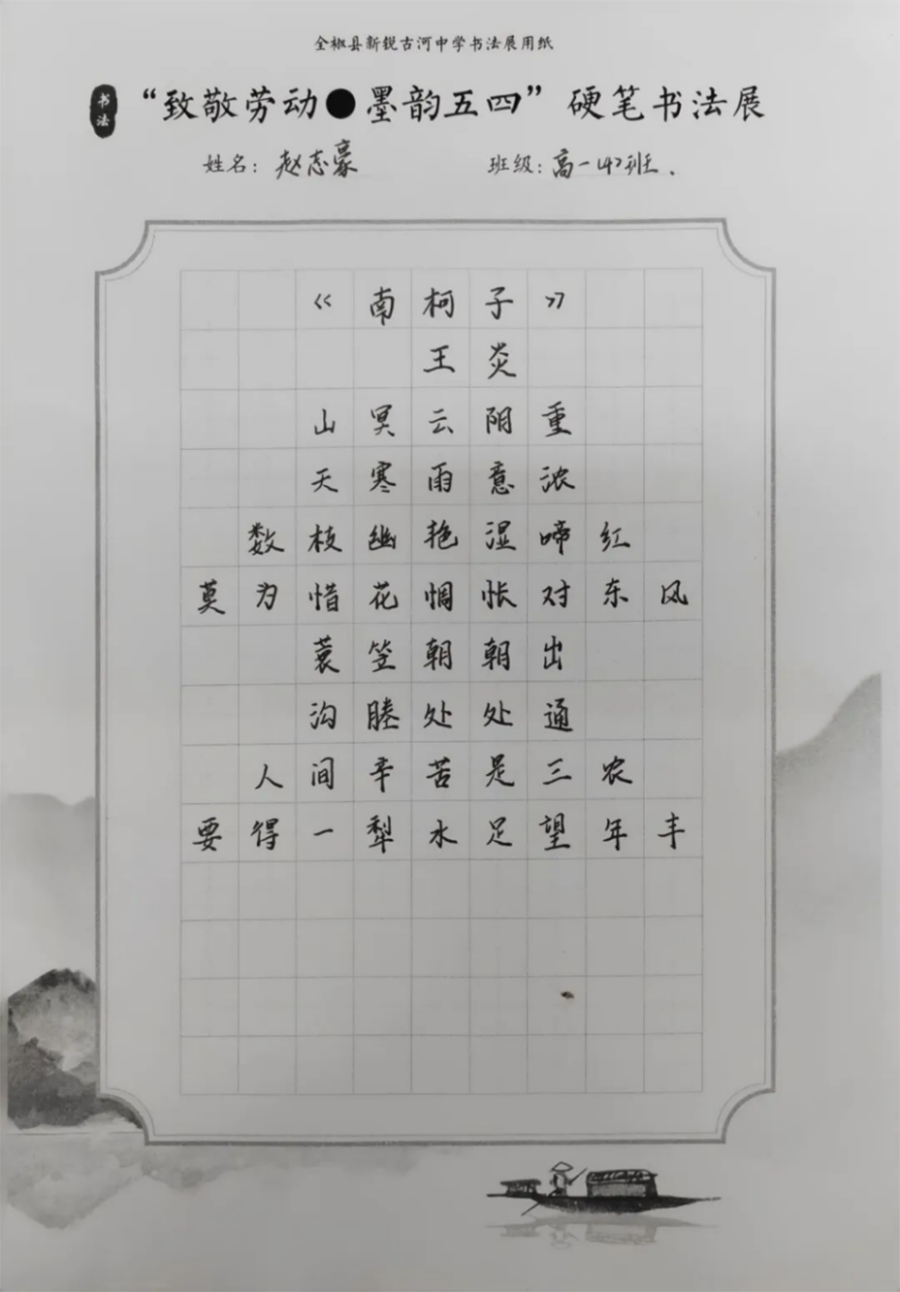 全椒县新锐古河中学书法展用纸
书法
“致敬劳动●墨韵五四”硬笔书法展
姓名：赵志豪 班级：高一(4)班.
《南柯子》
王炎
山冥云阴重
天寒雨意浓
数枝幽艳湿啼红
莫为惜花惆怅对东风
蓑笠朝朝出
沟塍处处通
人间辛苦是三农
要得一犁水足望年丰